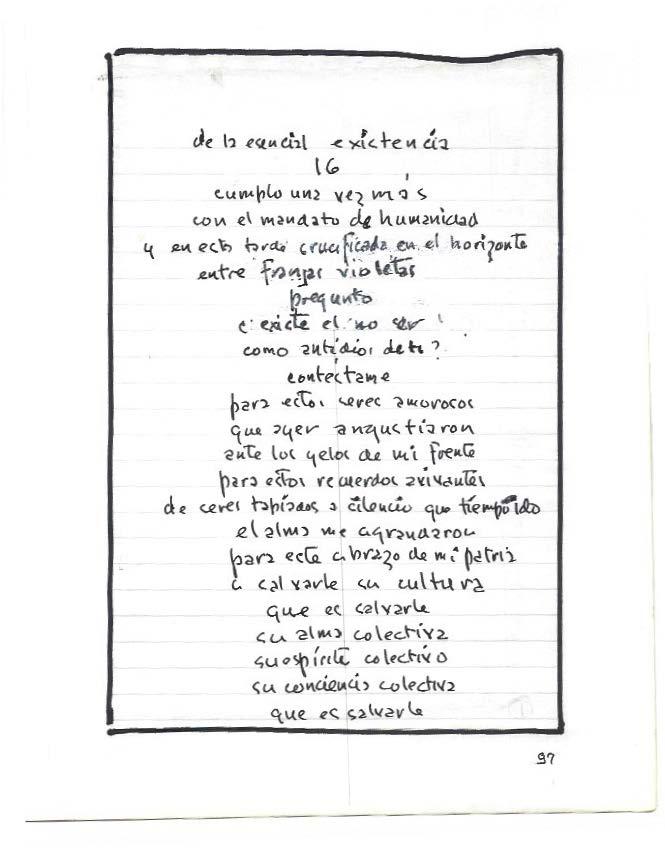 de la esencial existencia
16
cumplo una vez más
con el mandato de humanidad
y en esta tarde crucificada en el horizonte
entre franjas violetas
pregunto
¿existe el no ser
como antídios de ti?
contéstame
para estos seres amorosos
que ayer angustiaron
ante los yelos de mi frente
para estos recuerdos avivantes
de seres tapiados a silencio que tiempo ido
el alma me agrandaron
para este abrazo de mi patria
a salvarle su cultura
que es salvarle
su alma colectiva
su espíritu colectivo
su conciencia colectiva
que es salvarle
97